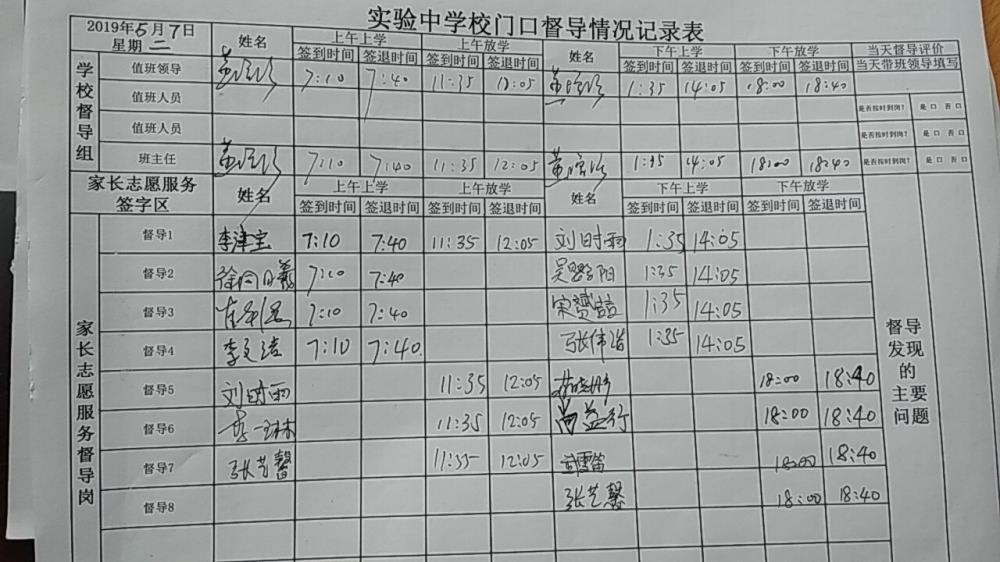 实验中学校门口督导情况记录表
2019年5月7日
星期二
姓名 上午上学 上午放学 姓名 下午上学 下午放学 当天督导评价
签到时间 签退时间 签到时间 签退时间 签到时间 签退时间 签到时间 签退时间 当天带班领导填写
学校督导组
值班领导 7:10 7:40 11:35 12:05 1:35 14:05 18:00 18:40
值班人员 是否按时到岗? 是口 否口
值班人员 是否按时到岗? 是口 否口
班主任 7:10 7:40 11:35 12:05 1:35 14:05 18:00 18:40 是否按时到岗? 是口 否口
家长志愿服务
签字区
姓名 上午上学 上午放学 姓名 下午上学 下午放学
签到时间 签退时间 签到时间 签退时间 签到时间 签退时间 签到时间 签退时间
家长志愿服务督导岗
督导1 李津宝 7:10 7:40 11:35 12:05 刘时雨 1:35 14:05
督导2 7:10 7:40 1:35 14:05
督导3 7:10 7:40 1:35 14:05
督导4 李文洁 7:10 7:40 张伟浩 1:35 14:05
督导5 刘时雨 11:35 12:05 18:00 18:40
督导6 李玉林 11:35 12:05 尚益行 18:00 18:40
督导7 张艺馨 11:35 12:05 18:00 18:40
督导8 张艺馨 18:00 18:40
督导
发现
的
主要
问题